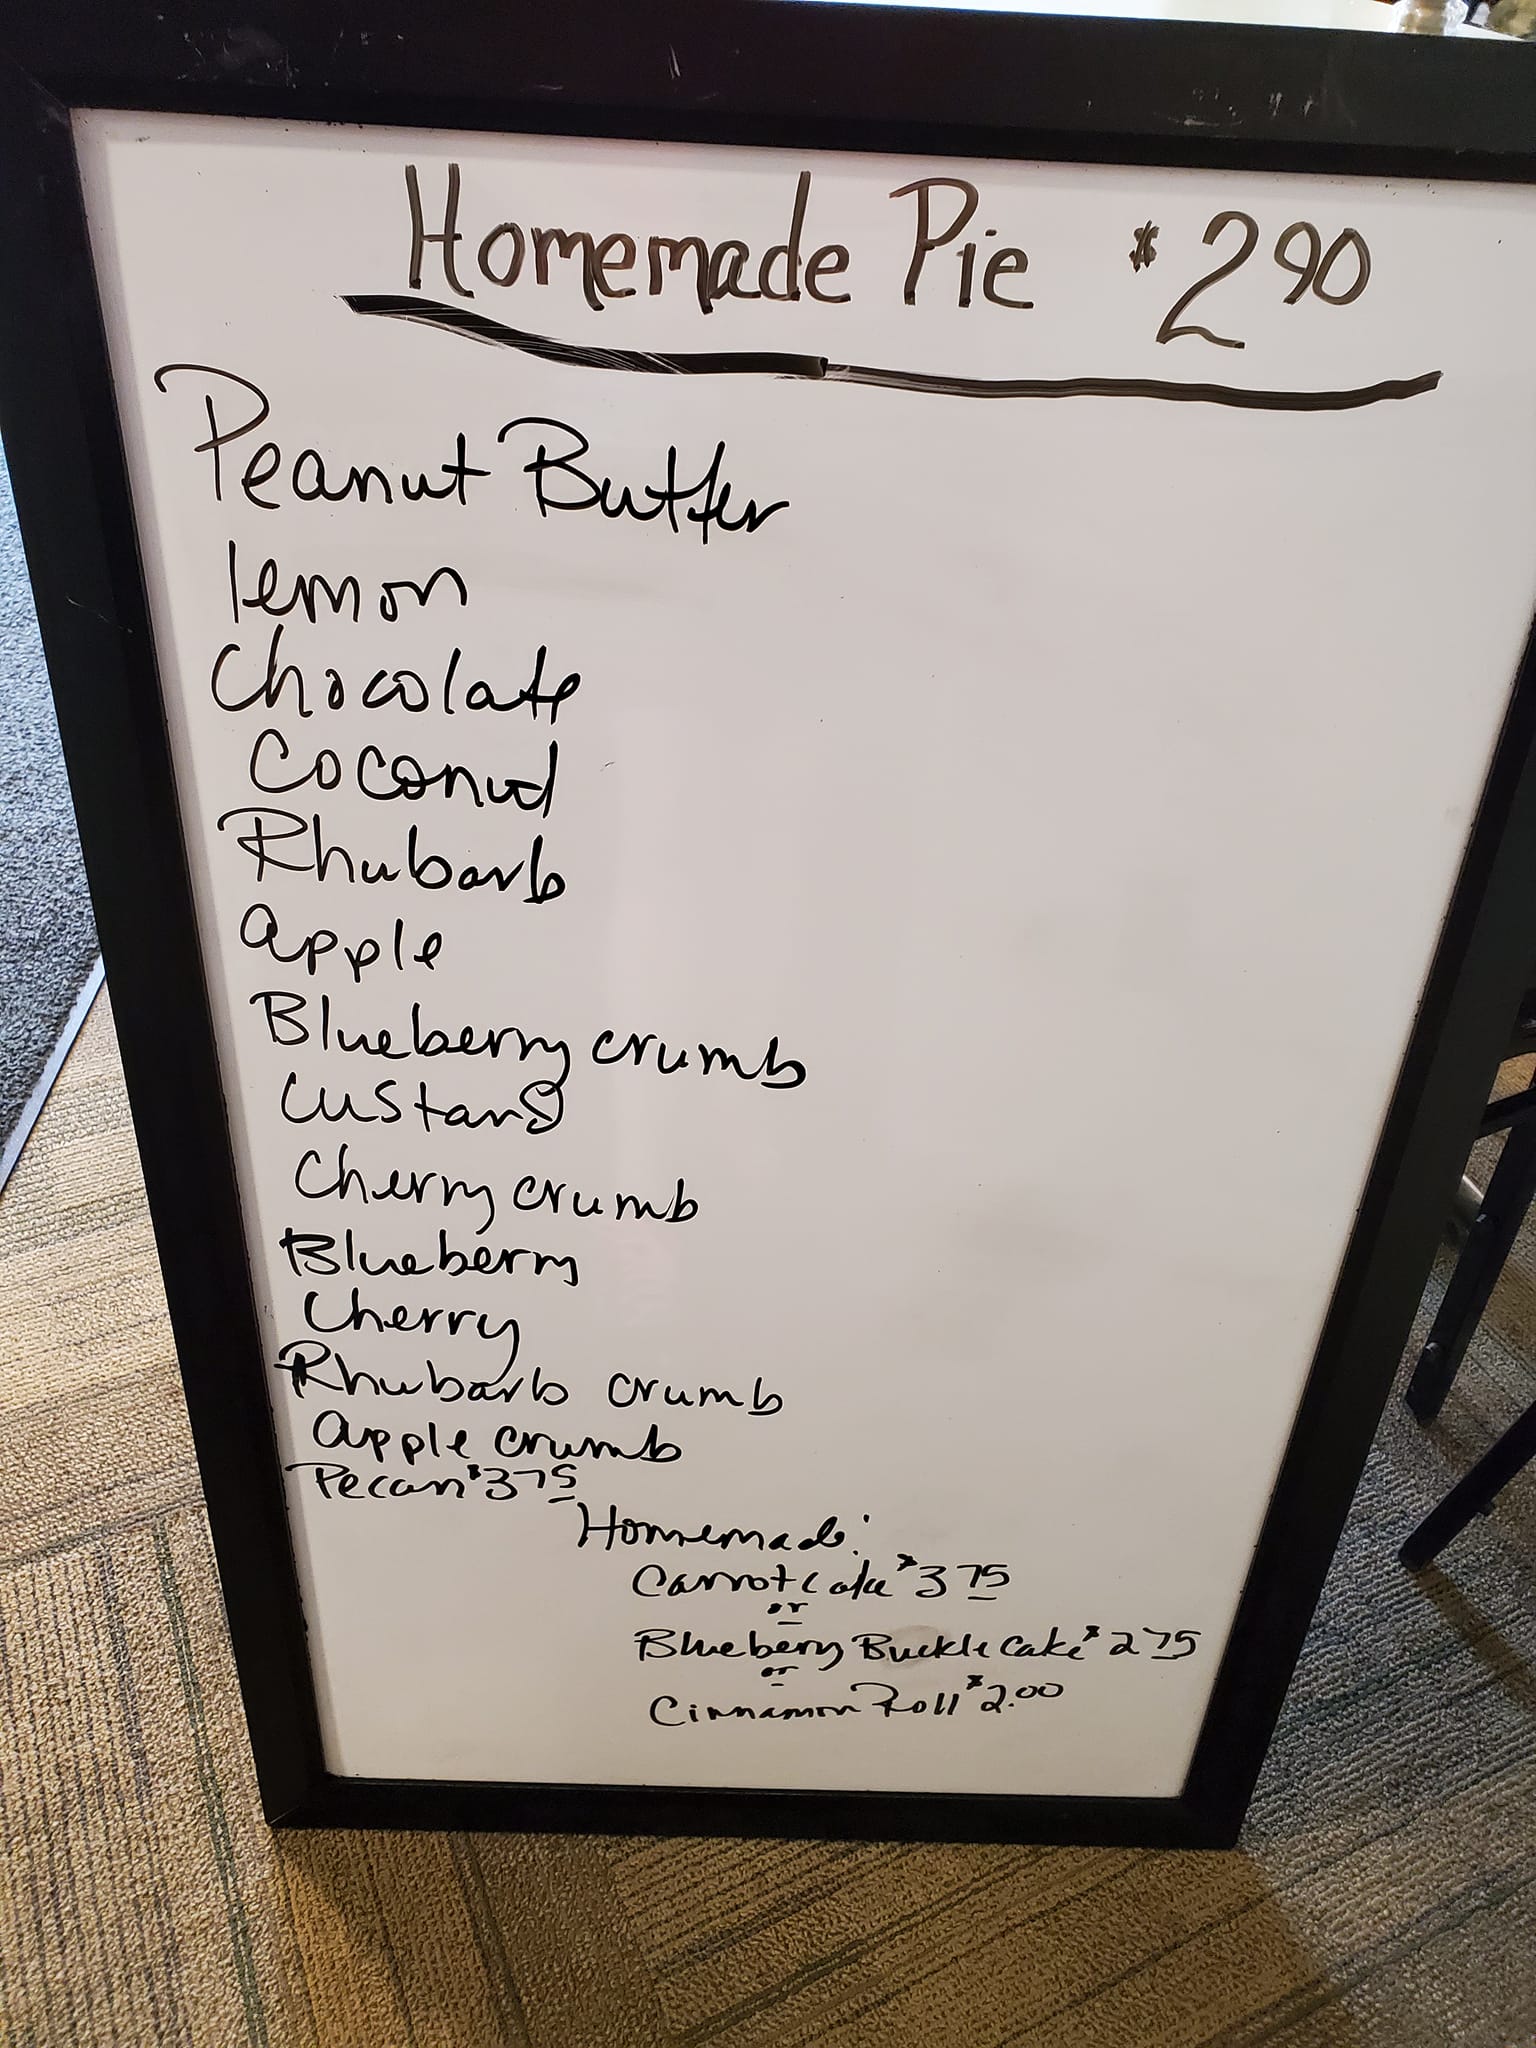 Homemade Pie $2.90
Peanut Butter
lemon
Chocolate
Coconut
Rhubarb
apple
Blueberry crumb
Custard
Cherry crumb
Blueberry
Cherry
Rhubarb crumb
apple crumb
Pecan $3.75
Homemade:
Carrot Cake $3.75
or
Blueberry Buckle Cake $2.75
or
Cinnamon Roll $2.00